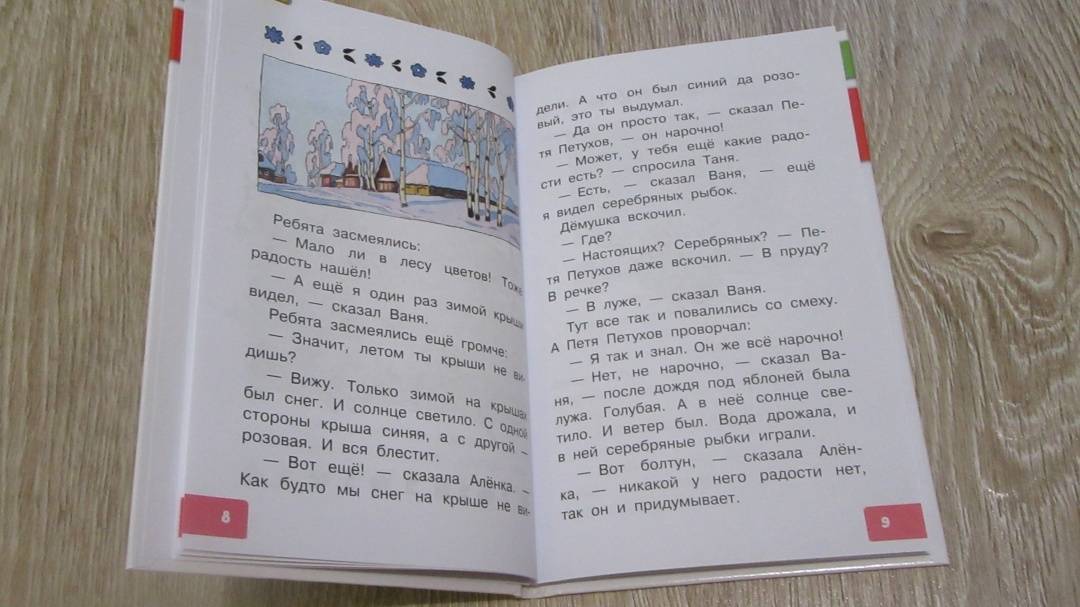 Ребята засмеялись:
— Мало ли в лесу цветов! Тоже
радость нашёл!
— А ещё я один раз зимой крыши
видел, — сказал Ваня.
Ребята засмеялись ещё громче:
— Значит, летом ты крыши не ви-
дишь?
— Вижу. Только зимой на крышах
был снег. И солнце светило. С одной
стороны крыша синяя, а с другой –
розовая. И вся блестит.
— Вот ещё! — сказала Алёнка. –
Как будто мы снег на крыше не ви-
8
дели. А что он был синий да розо-
вый, это ты выдумал.
— Да он просто так, — сказал Пе-
тя Петухов, — он нарочно!
— Может, у тебя ещё какие радо-
сти есть? — спросила Таня.
— Есть, — сказал Ваня, — ещё
я видел серебряных рыбок.
Дёмушка вскочил.
— Где?
— Настоящих? Серебряных? — Пе-
тя Петухов даже вскочил. — В пруду?
В речке?
— В луже, — сказал Ваня.
Тут все так и повалились со смеху.
А Петя Петухов проворчал:
— Я так и знал. Он же всё нарочно!
— Нет, не нарочно, — сказал Ва-
ня, — после дождя под яблоней была
лужа. Голубая. А в неё солнце све-
тило. И ветер был. Вода дрожала, и
в ней серебряные рыбки играли.
— Вот болтун, — сказала Алён-
ка, — никакой у него радости нет,
так он и придумывает.
9